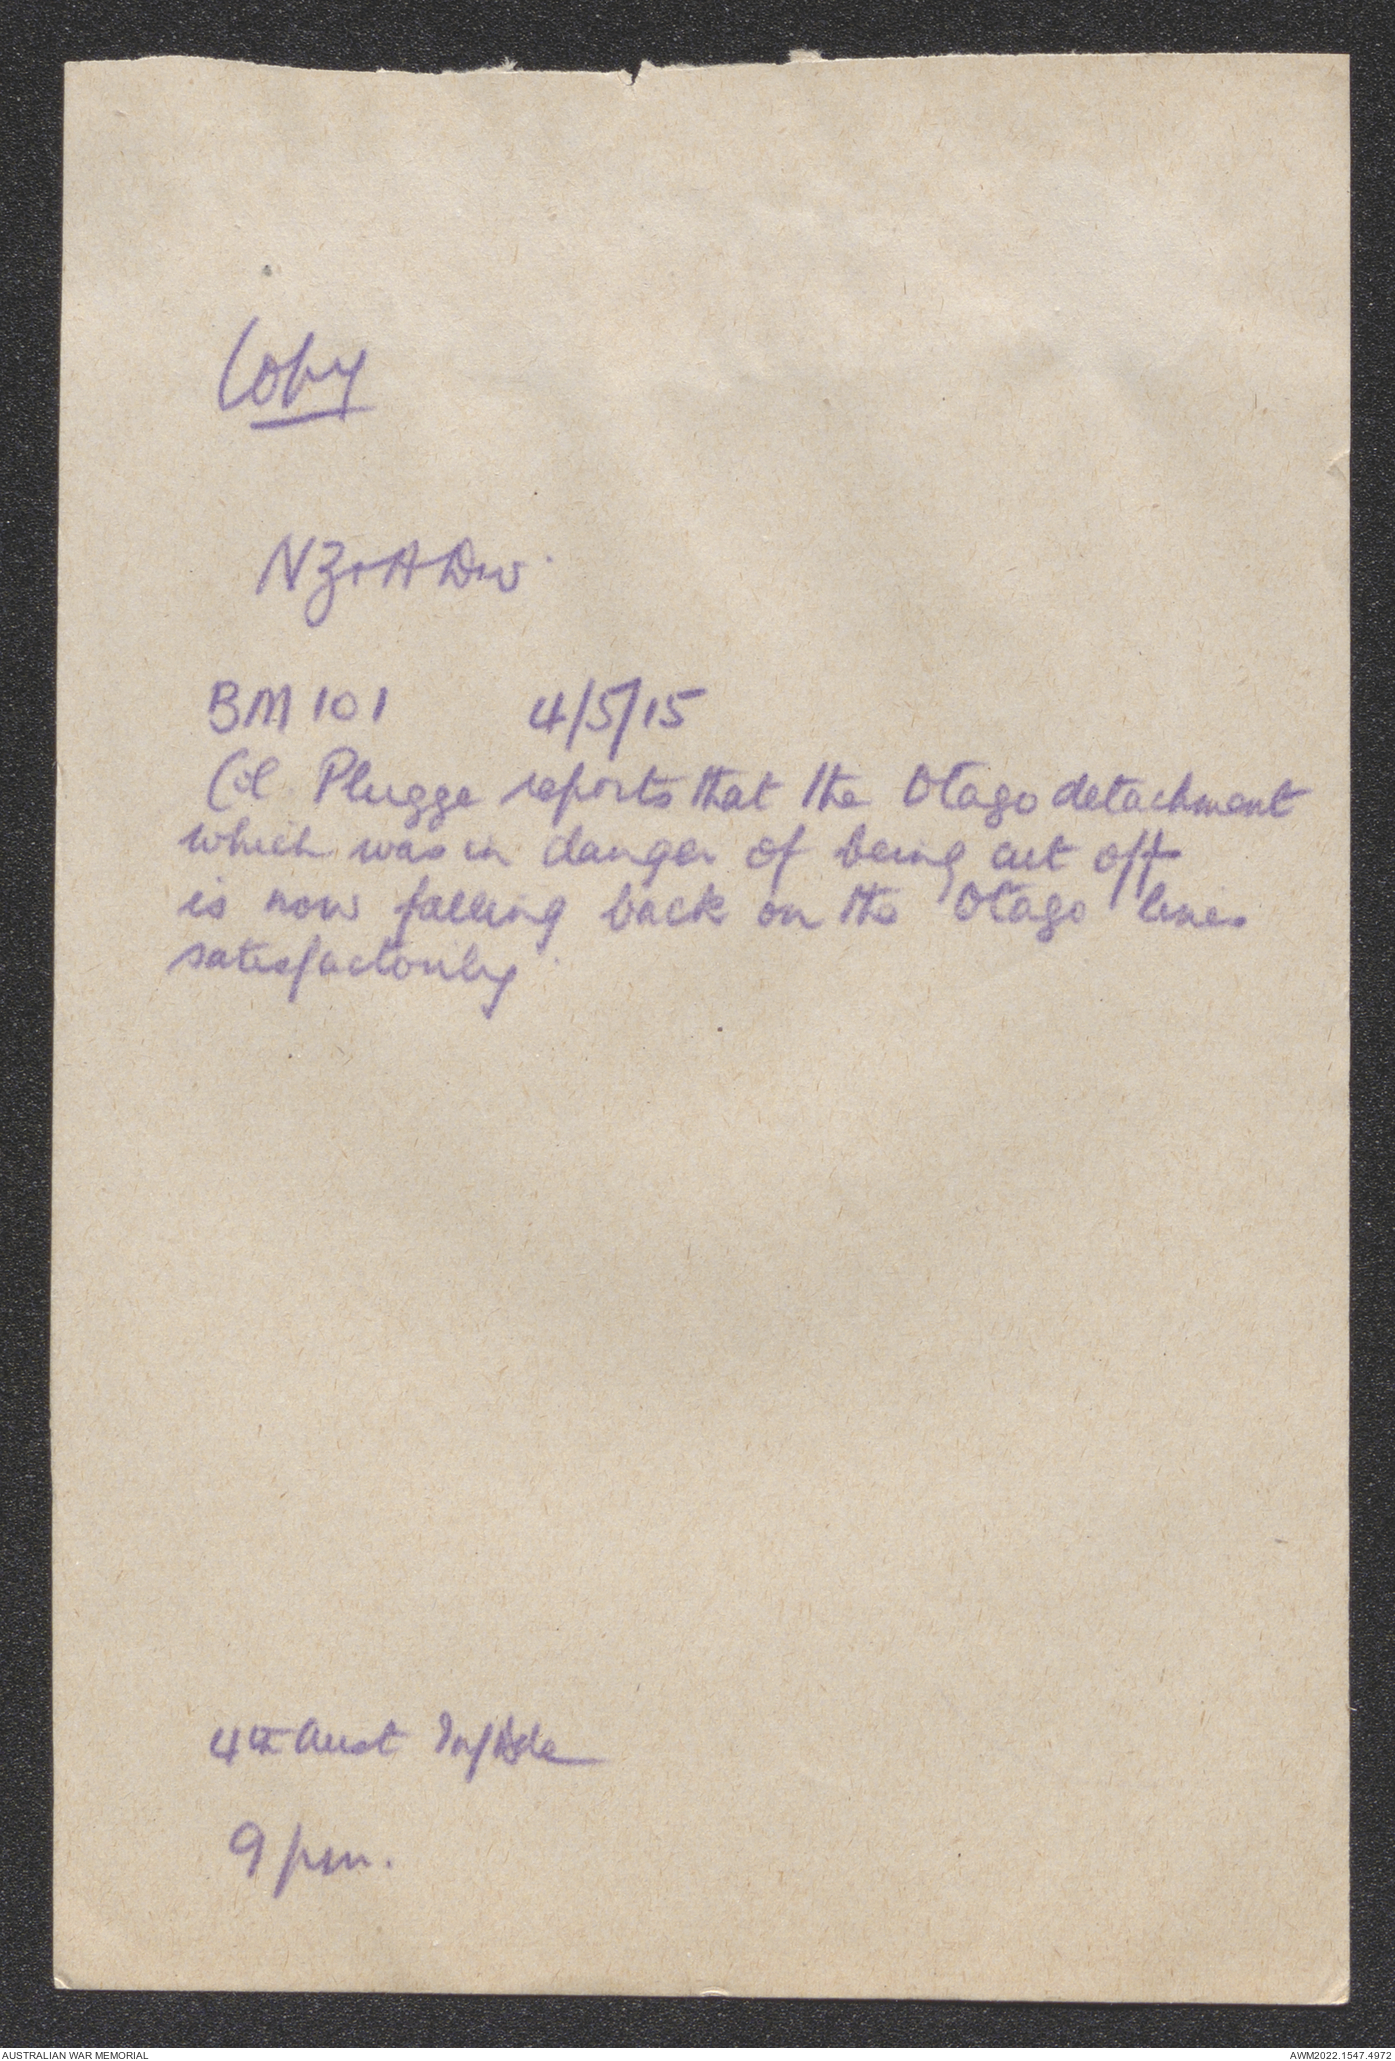 Copy
NZ & A Div.
BM 101 4/5/15
Col. Plugge reports that the Otago detachment
which was in danger of being cut off
is now falling back on the Otago lines
satisfactorily.
4th Aust Inf Bde
9 pm.
AUSTRALIAN WAR MEMORIAL
AWM2022.1547.4972